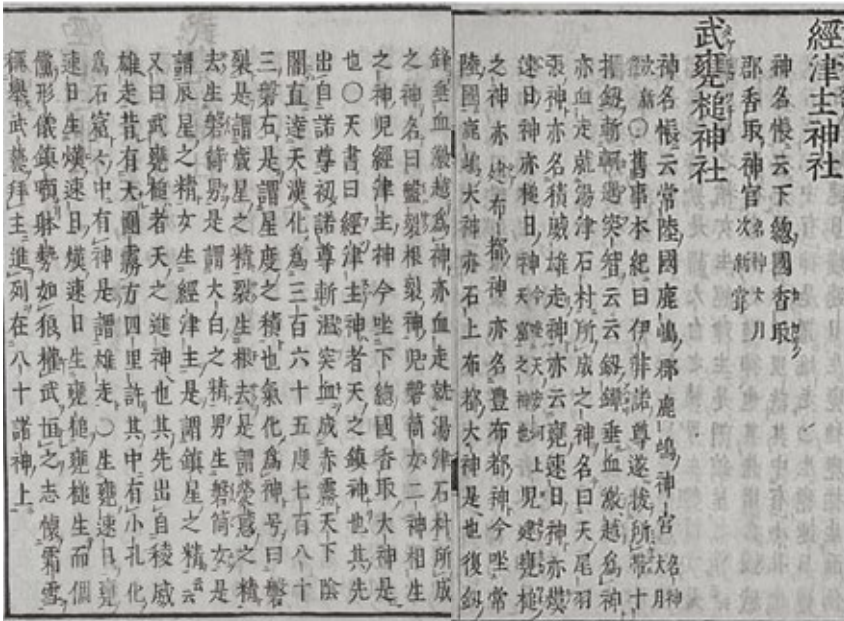 經津主神社
神名帳云下總國香取
郡香取神宮名神大月次新嘗
武甕槌神社
神名帳云常陸國鹿嶋郡鹿嶋神宮名神大月
次新嘗〇舊事本紀曰伊弉諾尊遂拔所帶十
握釼斬軻遇突智云云釼鐔垂血激越爲神
亦血走就湯津石村所成之神名曰天尾羽
張神亦名稜威雄走神亦云甕速日神亦熯
速日神亦槌日神今坐天安河上天窟之神也兒建甕槌
之神亦建布都神亦名豊布都神今坐常
陸國鹿嶋大神亦石上布都大神是也復釼
鋒垂血激越爲神亦血走就湯津石村所成
之神名曰磐裂根裂神兒磐筒女二神相生
之神兒經津主神今坐下總國香取大神是
也〇天書曰經津主神者天之鎮神也其先
出自諾尊初諾尊斬遇突血成赤霧天下陰
闇直達天漢化爲三百六十五度七百八十
三磐石是謂星度之積也氣化爲神号曰磐
裂是謂歲星之精裂生根去是謂熒惑之精
去生磐筒男是謂大白之精男生磐筒女是
謂辰星之精女生經津主是謂鎮星之精云云
又曰武甕槌者天之進神也其先出自稜威
雄走昔有大團霧方四里許其中有小孔化
爲石窟々中有神是謂雄走〇生甕速日甕
速日生熯速日熯速日生甕槌甕槌生而倜
儻形儀鎮頭射勢如狼權武恒之志懷霜雪
稱擧武藝拜主進列在八十諸神上